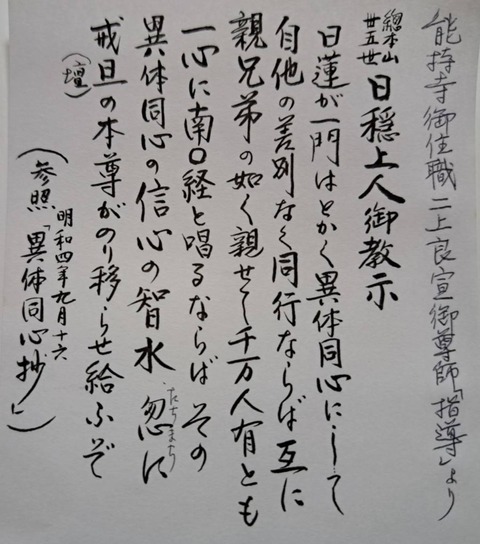 能持寺御住職二上良宣御尊師「指導」より
總本山
丗五世
日穏上人御教示
日蓮が一門はとかく異体同心にして
自他の差別なく同行ならば互に
親兄弟の如く親せて千万人有とも
一心に南〇経と唱るならばその
異体同心の信心の智水忽に
たちまち
戒旦の本尊がのり移らせ給ふぞ
(壇)
明和四年九月十六
(参照「異体同心抄」)